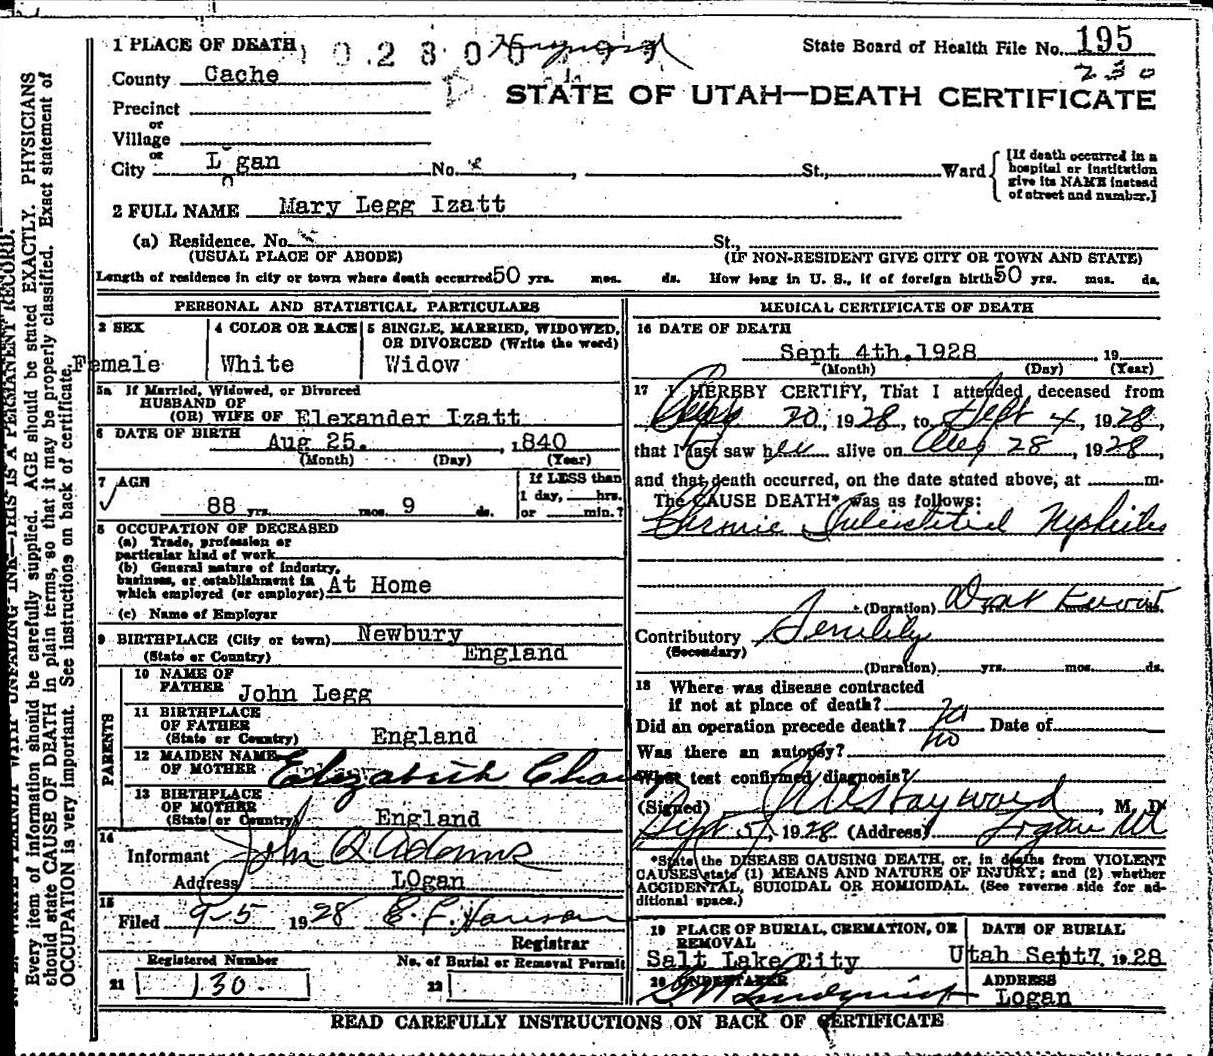 1 PLACE OF DEATH
State Board of Health File No. 195
230
County Cache
STATE OF UTAH—DEATH CERTIFICATE
Precinct
or
Village
or
City L gan No. St., Ward
o
[If death occurred in a
hospital or institution
give its NAME instead
of street and number.]
2 FULL NAME Mary Legg Izatt
(a) Residence. No. St.,
(USUAL PLACE OF ABODE) (IF NON-RESIDENT GIVE CITY OR TOWN AND STATE)
Length of residence in city or town where death occurred 50 yrs. mos. ds. How long in U. S., if of foreign birth 50 yrs. mos. ds.
PERSONAL AND STATISTICAL PARTICULARS
3 SEX
Female
4 COLOR OR RACE
White
5 SINGLE, MARRIED, WIDOWED,
OR DIVORCED (Write the word)
Widow
5a If Married, Widowed, or Divorced
HUSBAND OF
(OR) WIFE OF Elexander Izatt
6 DATE OF BIRTH Aug 25. , 1840
(Month) (Day) (Year)
7 AGE
88 yrs. mos. 9 ds.
If LESS than
1 day, hrs.
or min.?
8 OCCUPATION OF DECEASED
(a) Trade, profession or
particular kind of work
(b) General nature of industry,
business, or establishment in
which employed (or employer) At Home
(c) Name of Employer
9 BIRTHPLACE (City or town) Newbury
(State or Country) England
PARENTS
10 NAME OF
FATHER John Legg
11 BIRTHPLACE
OF FATHER
(State or Country) England
12 MAIDEN NAME
OF MOTHER Elizabeth
13 BIRTHPLACE
OF MOTHER
(State or Country) England
14
Informant John Q Adams
Address LOgan
15
Filed 9-5 1928 E. F. Hanson
Registrar
Registered Number
21 130.
No. of Burial or Removal Permit
22
MEDICAL CERTIFICATE OF DEATH
16 DATE OF DEATH
Sept 4th. 1928 19
(Month) (Day) (Year)
17 I HEREBY CERTIFY, That I attended deceased from
20, 1928, to Sept 4, 1928,
that I last saw her alive on Aug 28, 1928,
and that death occurred, on the date stated above, at m.
The CAUSE DEATH* was as follows:
Chronic Interstitial Nephritis
(Duration) Dont know
Contributory Senility
(Secondary)
(Duration) yrs. mos. ds.
18 Where was disease contracted
if not at place of death?
Did an operation precede death? no Date of
Was there an autopsy? no
What test confirmed diagnosis?
(Signed) Hayward, M. D.
Sept 5, 1928 (Address) Logan Ut
*State the DISEASE CAUSING DEATH, or, in deaths from VIOLENT
CAUSES state (1) MEANS AND NATURE OF INJURY; and (2) whether
ACCIDENTAL, SUICIDAL OR HOMICIDAL. (See reverse side for ad-
ditional space.)
19 PLACE OF BURIAL, CREMATION, OR
REMOVAL
Salt Lake City Utah
DATE OF BURIAL
Sept 7, 1928
20 UNDERTAKER
Lundquist
ADDRESS
Logan
READ CAREFULLY INSTRUCTIONS ON BACK OF CERTIFICATE
Every item of information should be carefully supplied. AGE should be stated EXACTLY. PHYSICIANS
should state CAUSE OF DEATH in plain terms, so that it may be properly classified. Exact statement of
OCCUPATION is very important. See instructions on back of certificate.